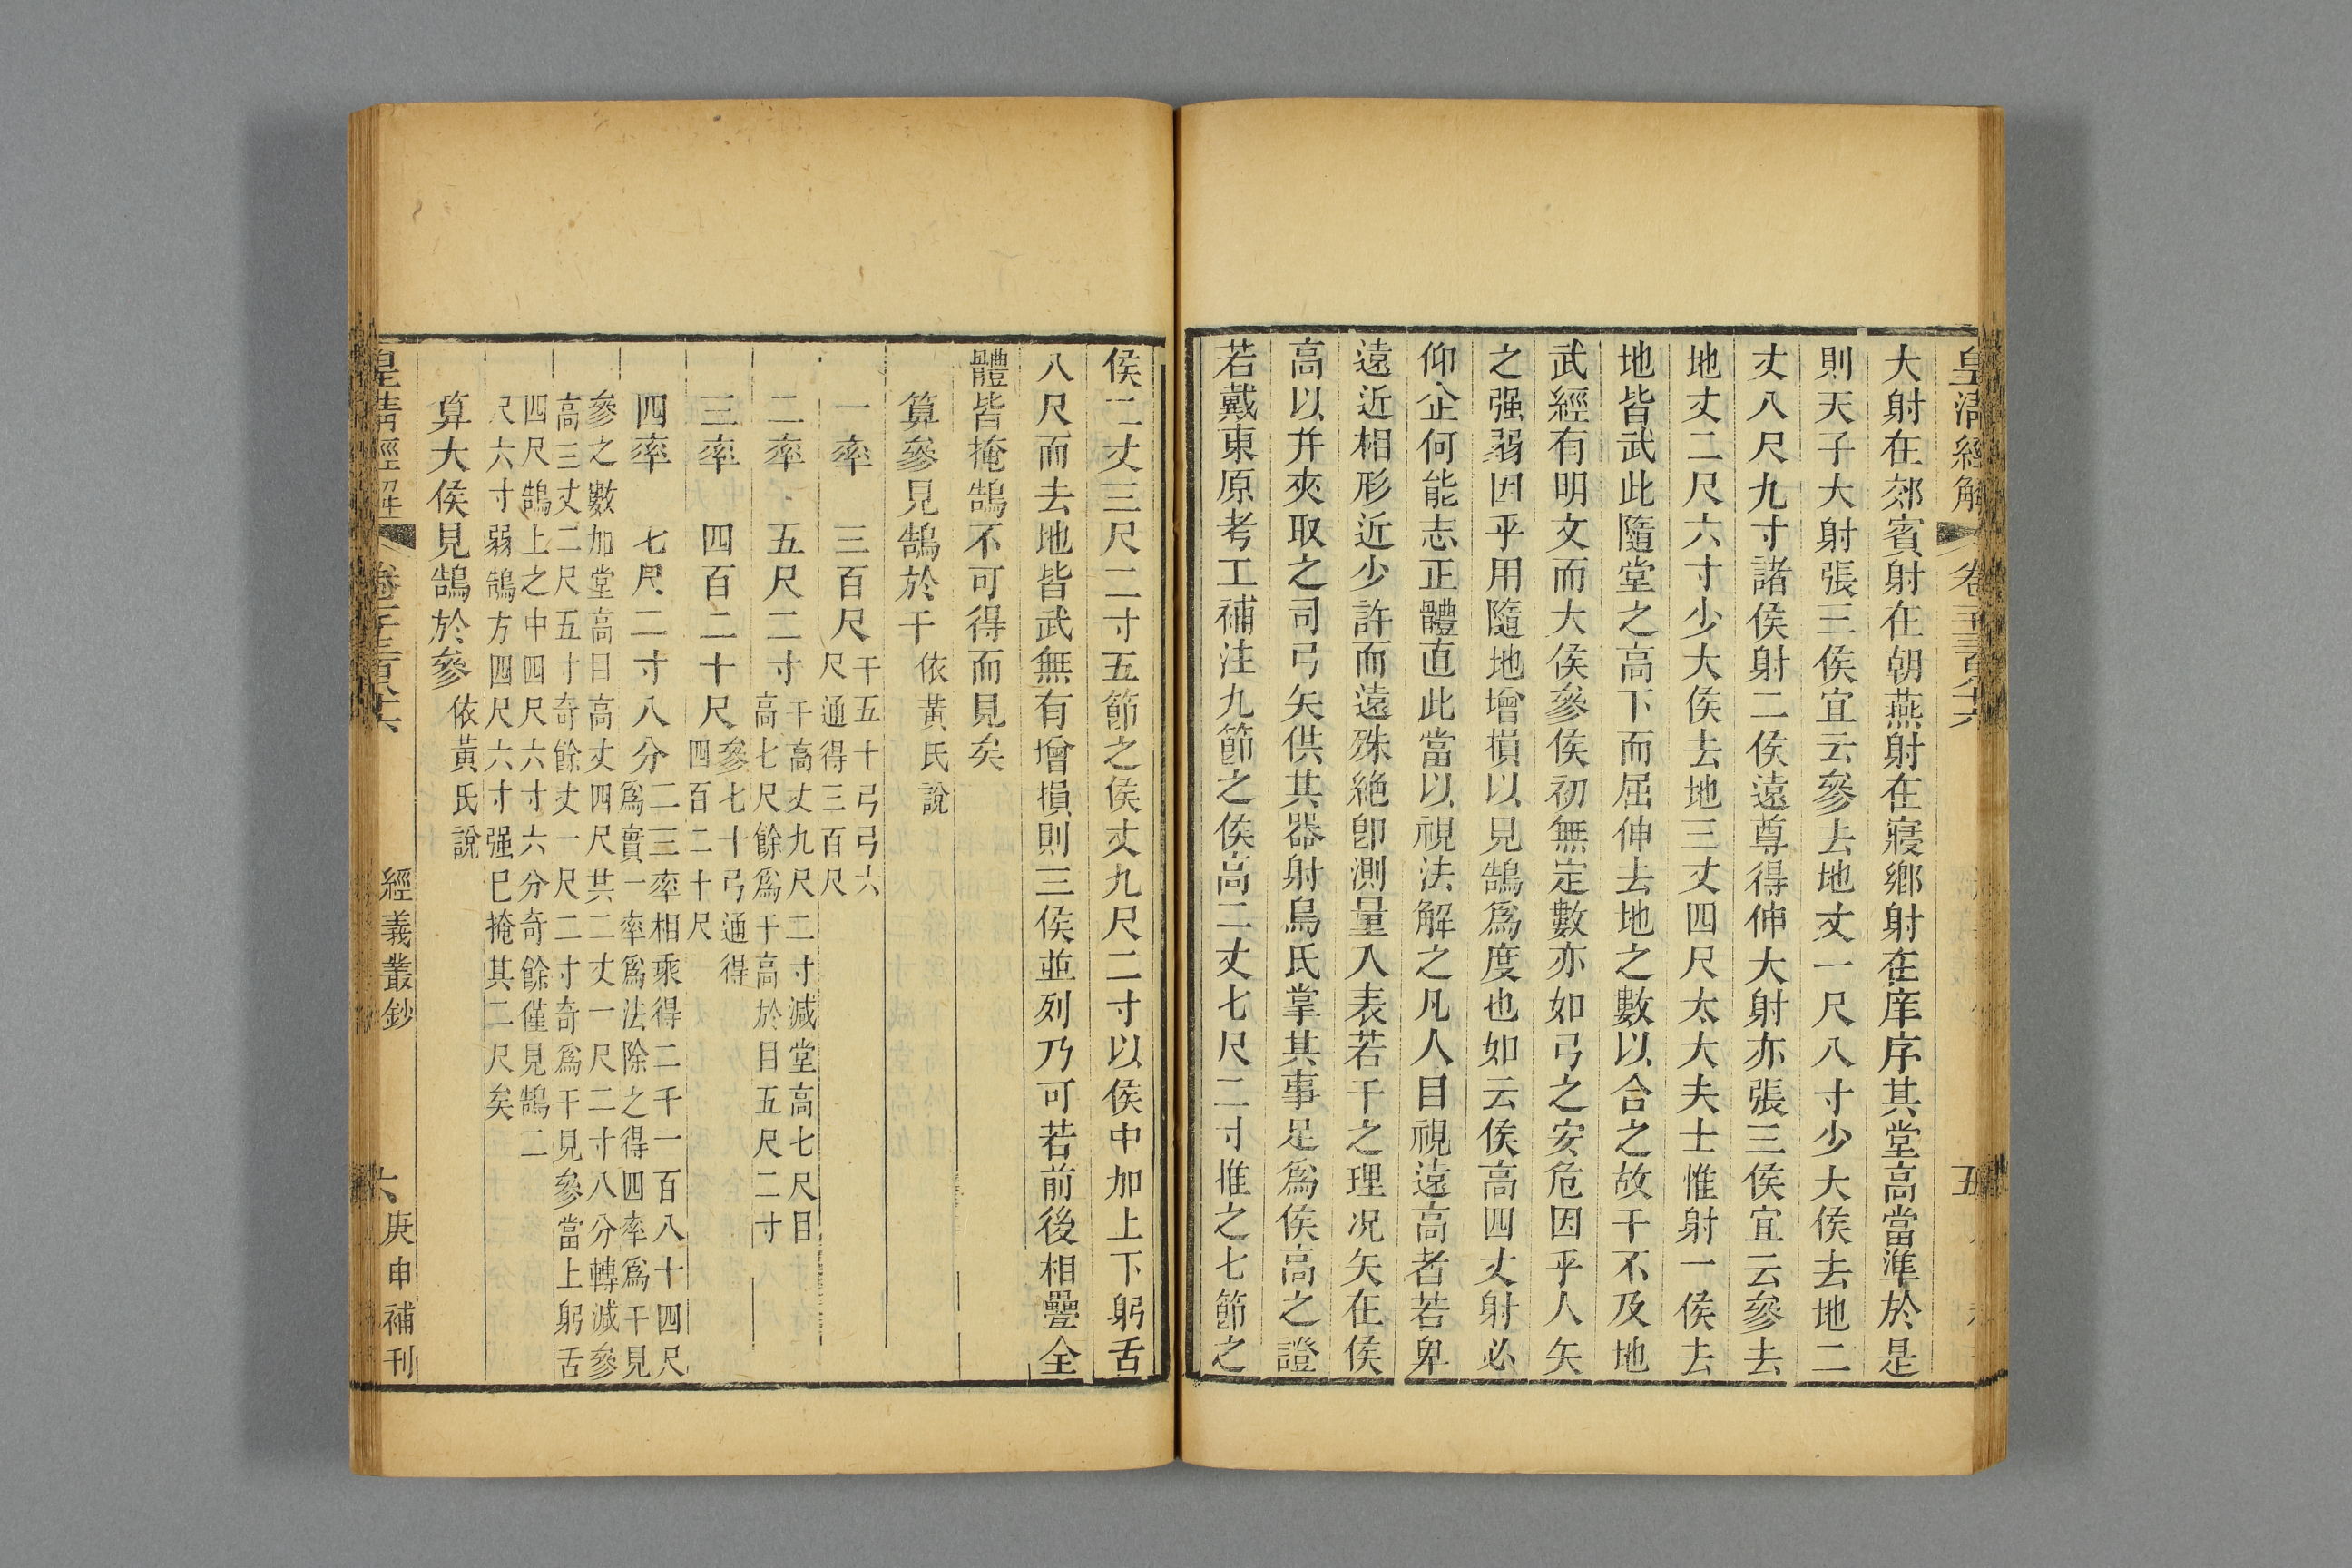 皇清經解
五
大射在郊賓射在朝燕射在寢鄉射在庠序其堂高當準於是
則天子大射張三侯宜云參去地丈一尺八寸少大侯去地二
丈八尺九寸諸侯射二侯遠尊得伸大射亦張三侯宜云參去
地丈二尺六寸少大侯去地三丈四尺太大夫士惟射一侯去
地皆武此隨堂之高下而屈伸去地之數以合之故干不及地
武經有明文而大侯參侯初無定數亦如弓之安危因乎人矢
之强弱因乎用隨地增損以見鵠爲度也如云侯高四丈射必
仰企何能志正體直此當以視法解之凡人目視遠高者若卑
遠近相形近少許而遠殊絶卽測量人表若干之理况矢在侯
高以并夾取之司弓矢供其器射鳥氏掌其事足爲侯高之證
若戴東原考工補注九節之侯高二丈七尺二寸推之七節之
侯二丈三尺二寸五節之侯丈九尺二寸以侯中加上下躬舌
八尺而去地皆武無有增損則三侯並列乃可若前後相疊全
體皆掩鵠不可得而見矣
算參見鵠於干依黃氏說
一率 三百尺干五十弓弓六
尺通得三百尺
二率 五尺二寸干高丈九尺二寸減堂高七尺目
高七尺餘爲干高於目五尺二寸
三率 四百二十尺參七十弓通得
四百二十尺
四率 七尺二寸八分二三率相乘得二千一百八十四尺
爲實一率爲法除之得四率爲干見
參之數加堂高目高丈四尺共二丈一尺二寸八分轉減參
高三丈二尺五寸奇餘丈一尺二寸奇爲干見參當上躬舌
四尺鵠上之中四尺六寸六分奇餘僅見鵠二
尺六寸弱鵠方四尺六寸强巳掩其二尺矣
算大侯見鵠於參依黃氏說
皇清經解
經義叢鈔
六
庚申補刊